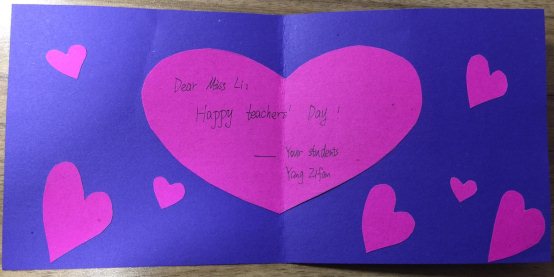 Dear Miss Li:
Happy teachers' Day!
— Your students
Yang Zifan